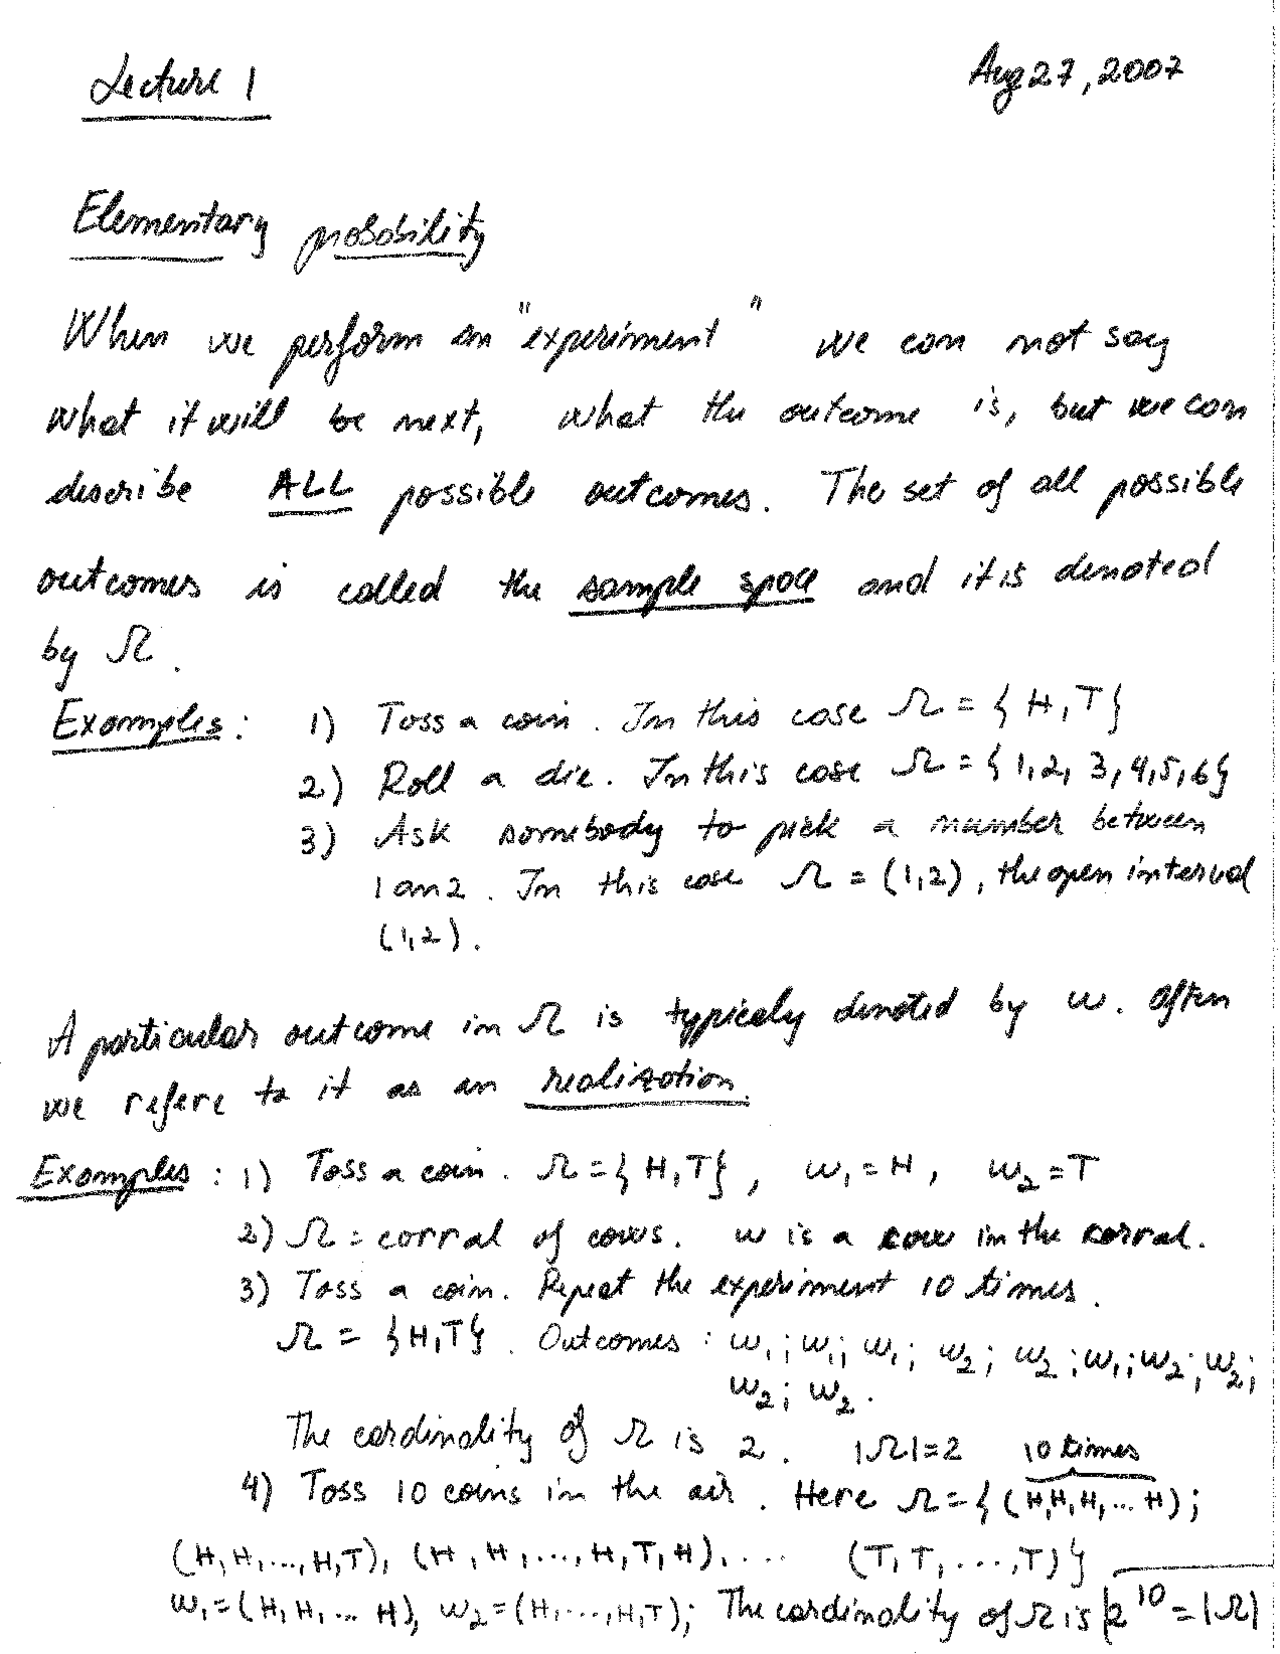 Lecture 1
Aug 27, 2007
Elementary probability
When we perform an "experiment" we can not say
what it will be next, what the outcome is, but we can
describe ALL possible outcomes. The set of all possible
outcomes is called the sample space and it is denoted
by Ω.
Examples: 1) Toss a coin. In this case Ω = {H, T}
2) Roll a die. In this case Ω = {1, 2, 3, 4, 5, 6}
3) Ask somebody to pick a number between
1 an 2. In this case Ω = (1,2), the open interval
(1,2).
A particular outcome in Ω is typicaly denoted by ω. Often
we refere to it as an realization.
Examples: 1) Toss a coin. Ω = {H, T}, ω₁ = H, ω₂ = T
2) Ω = corral of cows. ω is a cow in the corral.
3) Toss a coin. Repeat the experiment 10 times.
Ω = {H, T}. Outcomes: ω₁; ω₁; ω₁; ω₂; ω₂; ω₁; ω₂; ω₂;
ω₂; ω₂.
The cardinality of Ω is 2. |Ω| = 2 10 times
4) Toss 10 coins in the air. Here Ω = {(H, H, H, ... H);
(H, H, ..., H, T), (H, H, ..., H, T, H), .... (T, T, ..., T)}
ω₁ = (H, H, ... H), ω₂ = (H, ..., H, T); The cardinality of Ω is 2¹⁰ = |Ω|